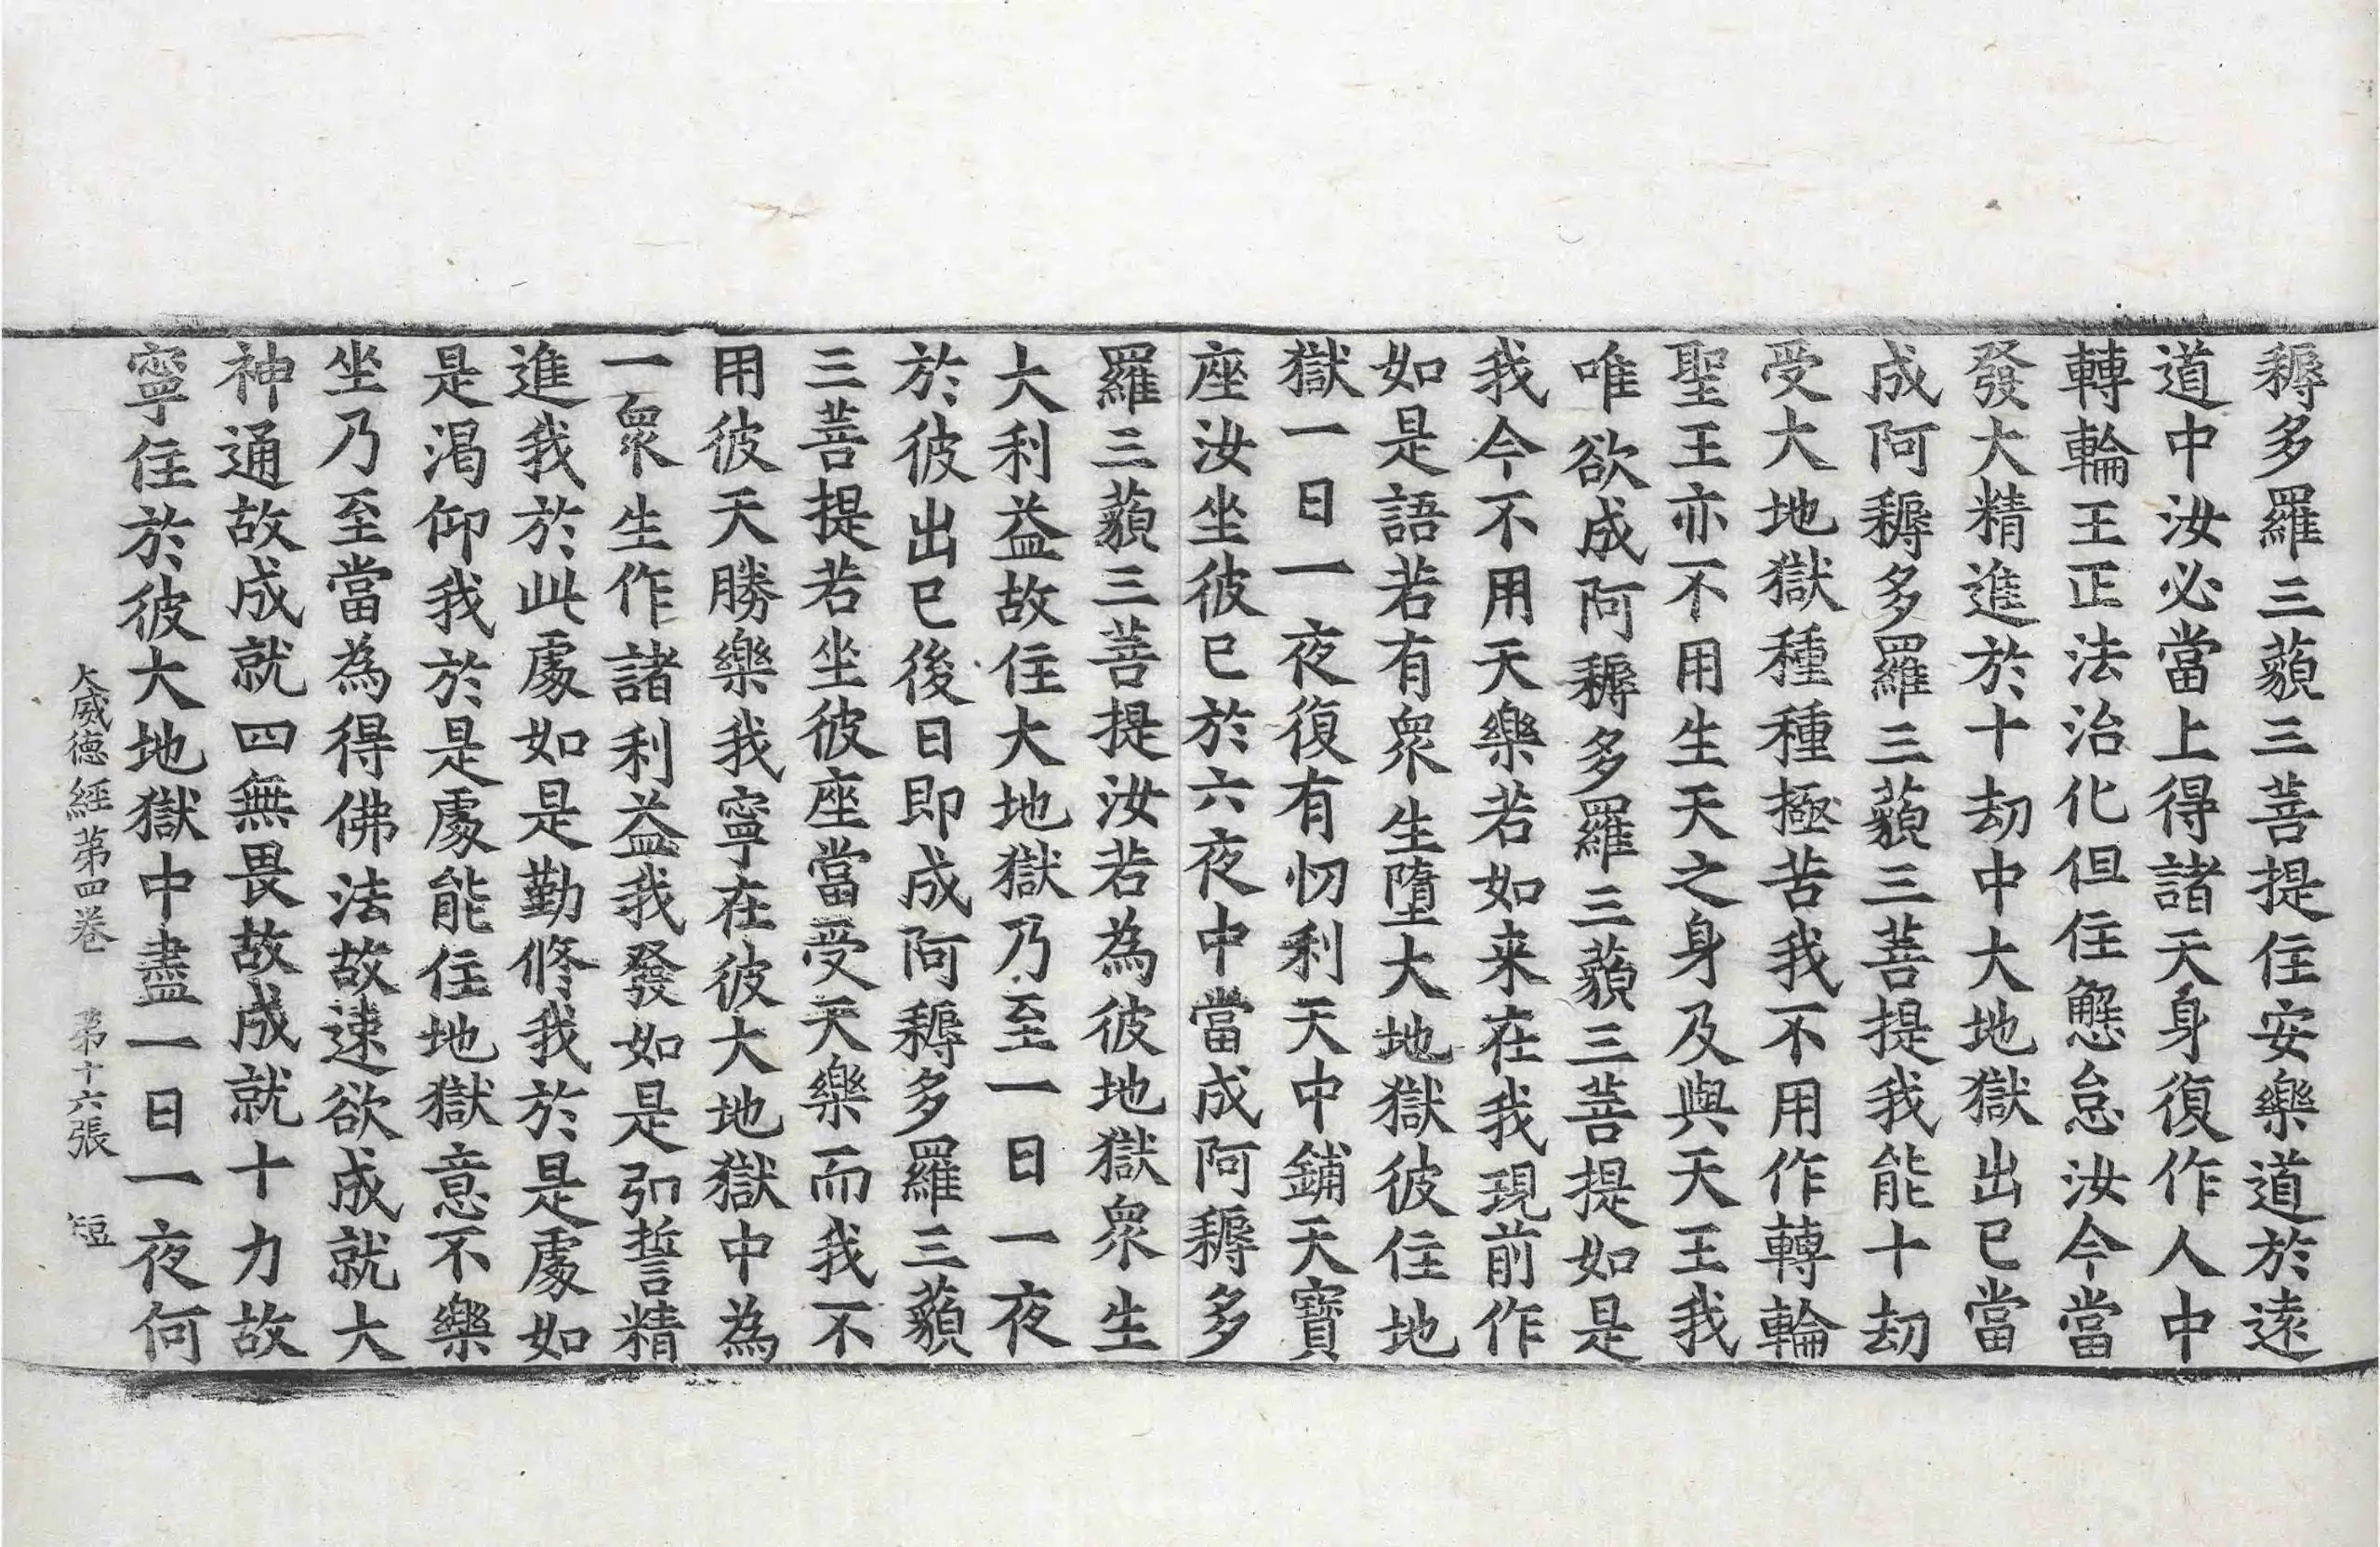 耨多羅三藐三菩提住安樂道於逺
道中汝必當上得諸天身復作人中
轉輪王正法治化但住懈怠汝今當
發大精進於十劫中大地獄出已當
成阿耨多羅三藐三菩提我能十劫
受大地獄種種極苦我不用作轉輪
聖王亦不用生天之身及與天王我
唯欲成阿耨多羅三藐三菩提如是
我今不用天樂若如来在我現前作
如是語若有衆生墮大地獄彼住地
獄一日一夜復有忉利天中鋪天寶
座汝坐彼已於六夜中當成阿耨多
羅三藐三菩提汝若為彼地獄衆生
大利益故住大地獄乃至一日一夜
於彼出已後日即成阿耨多羅三藐
三菩提若坐彼座當受天樂而我不
用彼天勝樂我寧在彼大地獄中為
一衆生作諸利益我發如是弘誓精
進我於此處如是勤修我於是處如
是渴仰我於是處能住地獄意不樂
坐乃至當為得佛法故速欲成就大
神通故成就四無畏故成就十力故
寧住於彼大地獄中盡一日一夜何
大威德經第四卷　第十六張　短